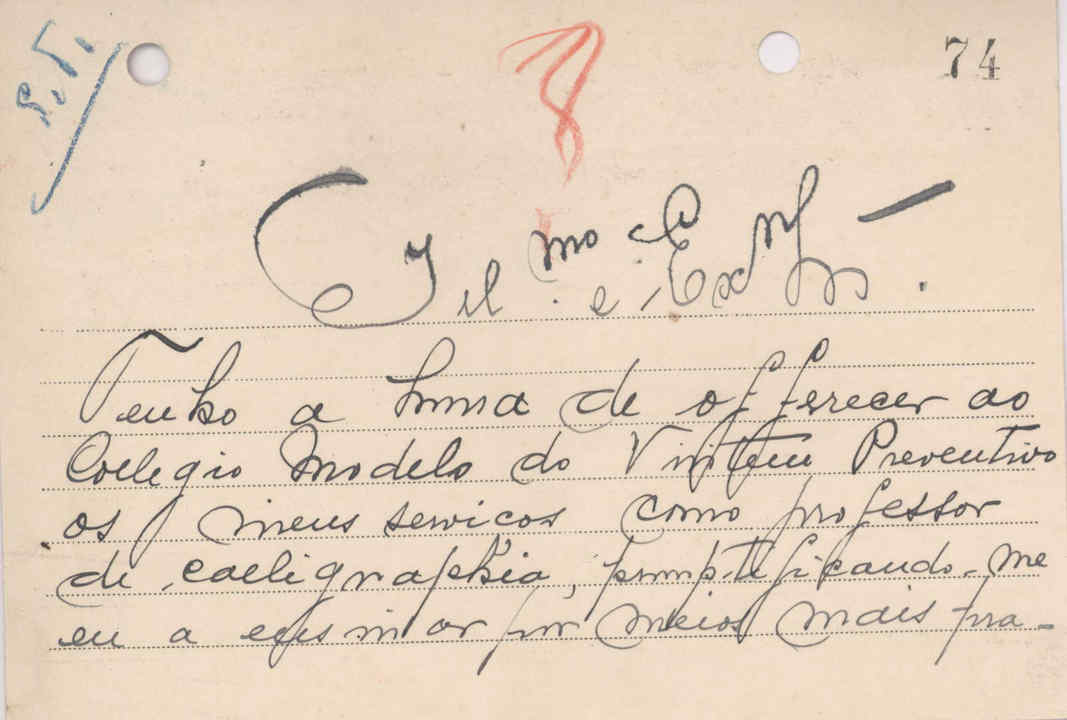 74
Ill mo e Ex
Tenho a honra de offerecer ao
Collegio Modelo do Vintem Preventivo
os meus servicos como professor
de calligraphia, promptificando-me
eu a ensinar por meios mais pra-